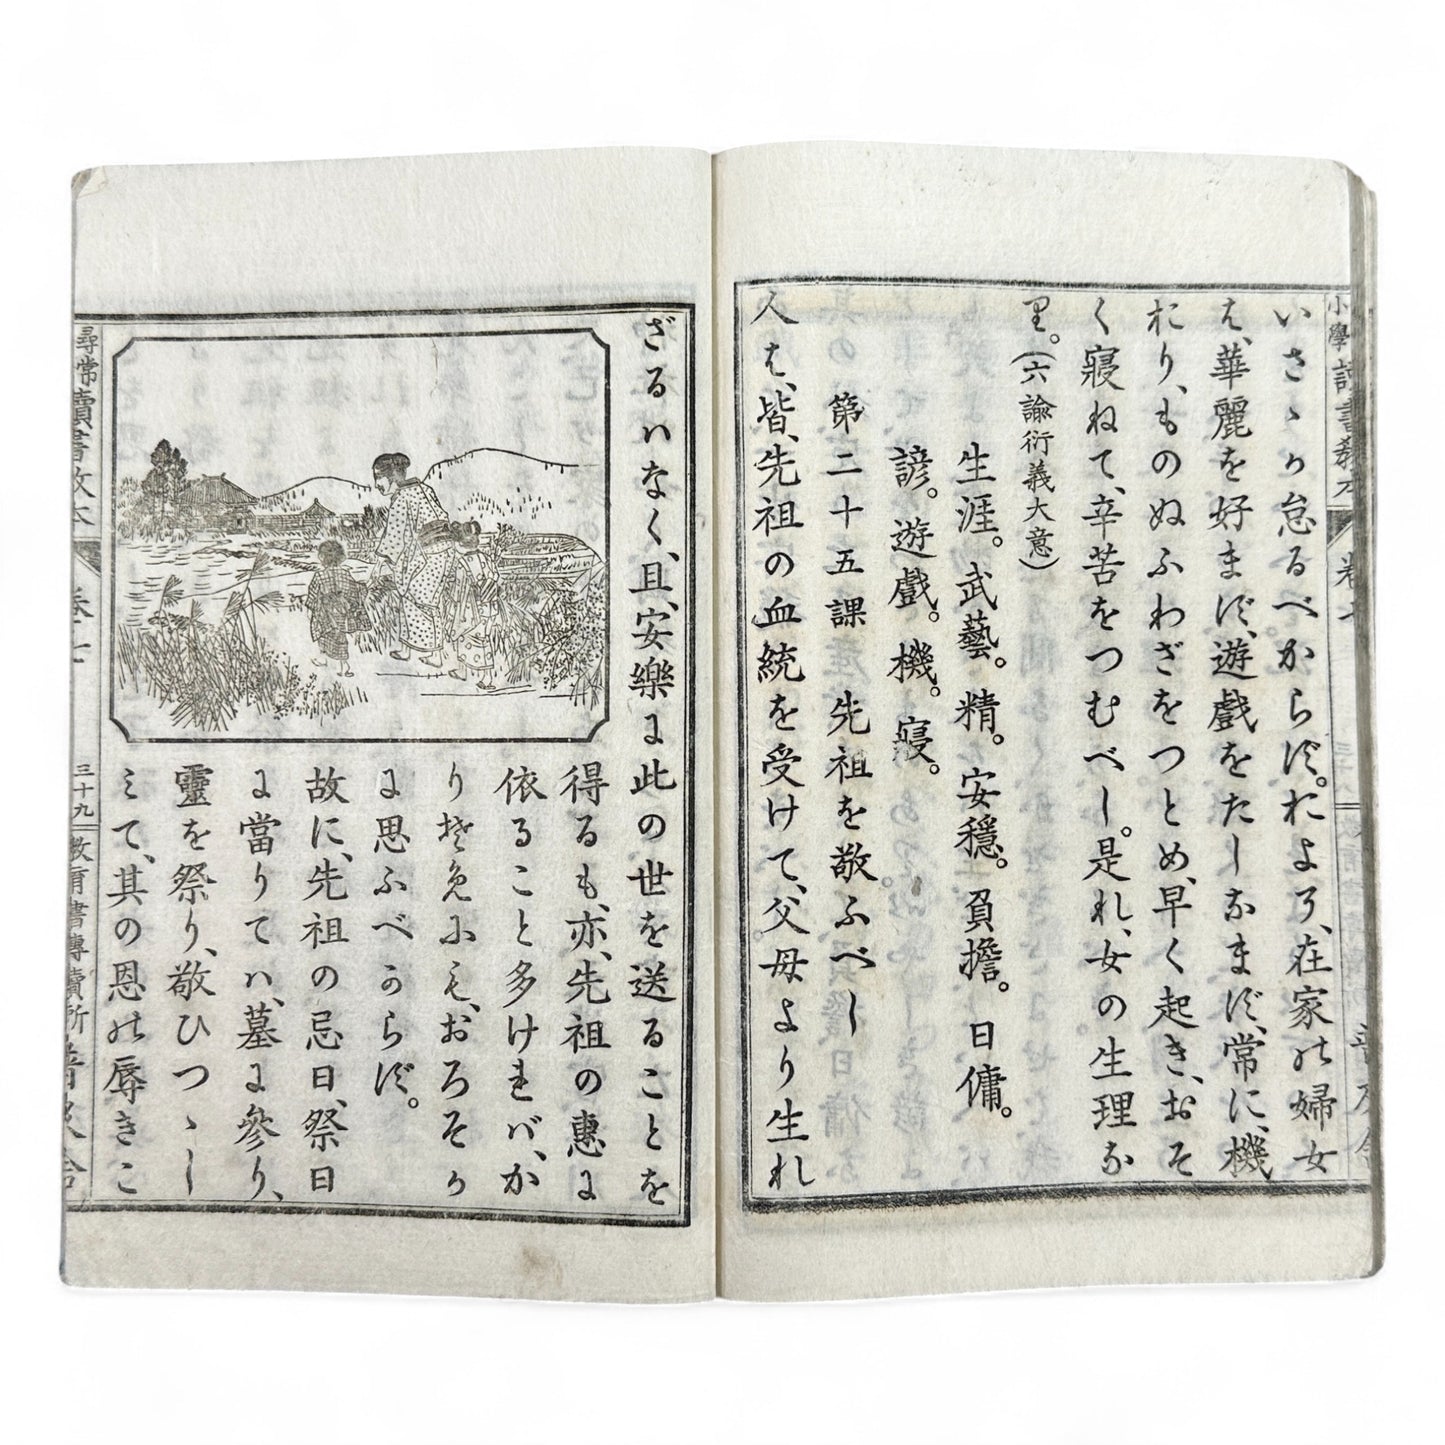 小學讀書教本
卷七
いさゝか怠るべからず。たとひ、在家の婦女
は、華麗を好まず、遊戲をたしなまず、常に、機
おり、ものぬふわざをつとめ、早く起き、おそ
く寢ねて、辛苦をつむべし。是れ、女の生理な
り。(六諭衍義大意)
生涯。武藝。精。安穩。負擔。日傭。
諺。遊戲。機。寢。
第二十五課 先祖を敬ふべし
人は、皆、先祖の血統を受けて、父母より生れ
ざるハなく、且、安樂に此の世を送ることを
得るも、亦、先祖の惠に
依ること多けれバ、か
りそめにも、おろそか
に思ふべからず。
故に、先祖の忌日、祭日
に當りてハ、墓に參り、
靈を祭り、敬ひつゝし
みて、其の恩の辱きこ
尋常讀書教本
卷七
三十九
教育書專賣所普及舍